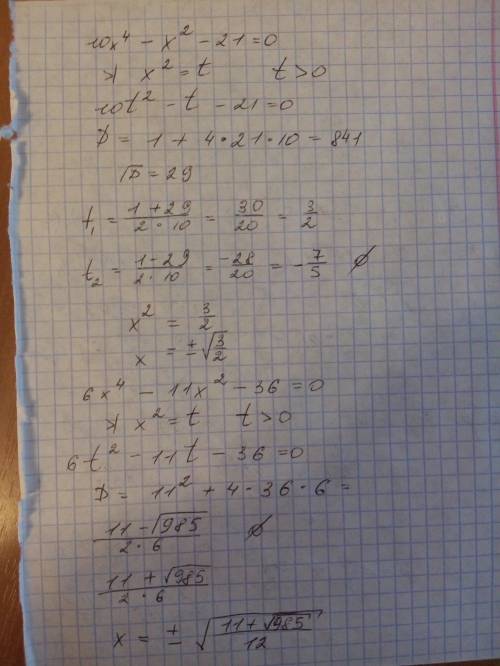 10x⁴ - x² - 21 = 0
x² = t t > 0
10t² - t - 21 = 0
D = 1 + 4 · 21 · 10 = 841
√D = 29
t₁ = (1 + 29)/(2 · 10) = 30/20 = 3/2
t₂ = (1 - 29)/(2 · 10) = -28/20 = -7/5 ∅
x² = 3/2
x = ±√(3/2)
6x⁴ - 11x² - 36 = 0
x² = t t > 0
6t² - 11t - 36 = 0
D = 11² + 4 · 36 · 6 =
(11 - √985)/(2 · 6) ∅
(11 + √985)/(2 · 6)
x = ± √((11 + √985)/12)